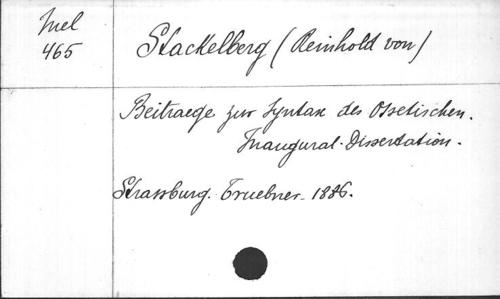 Inel
465
Stackelberg (Reinhold von)
Beitraege zur Syntax des Ossetischen.
Inaugural-Dissertation.
Strassburg. Truebner. 1886.